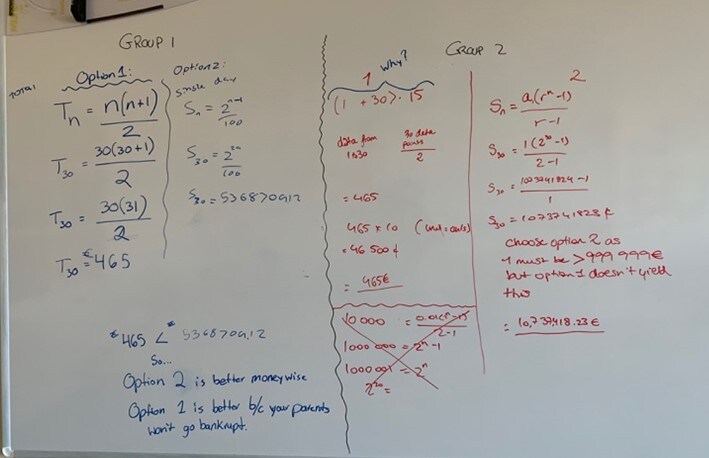 GROUP 1
TOTAL
Option 1:
T_n = n(n+1)/2
T_30 = 30(30+1)/2
T_30 = 30(31)/2
T_30 = €465
Option 2:
single day
S_n = 2^(n-1)/100
S_30 = 2^29/100
S_30 = 5368709.12
€465 < € 5368709.12
So...
Option 2 is better moneywise
Option 1 is better b/c your parents
won't go bankrupt.
GROUP 2
1 why?
(1 + 30) · 15
data from
1 to 30
30 data
points
2
= 465
465 × 10
= 46 500 ¢
= 465€
10 000 = 0.01(2^n-1)/2-1
1000 000 = 2^n - 1
1000 001 = 2^n
2^20 =
2
S_n = a_1(r^n - 1)/r - 1
S_30 = 1(2^30 - 1)/2 - 1
S_30 = 1073741824 - 1/1
S_30 = 1073741823 ¢
choose option 2 as
1 must be > 999 999€
but option 1 doesn't yield
this
= 10,737418.23 €